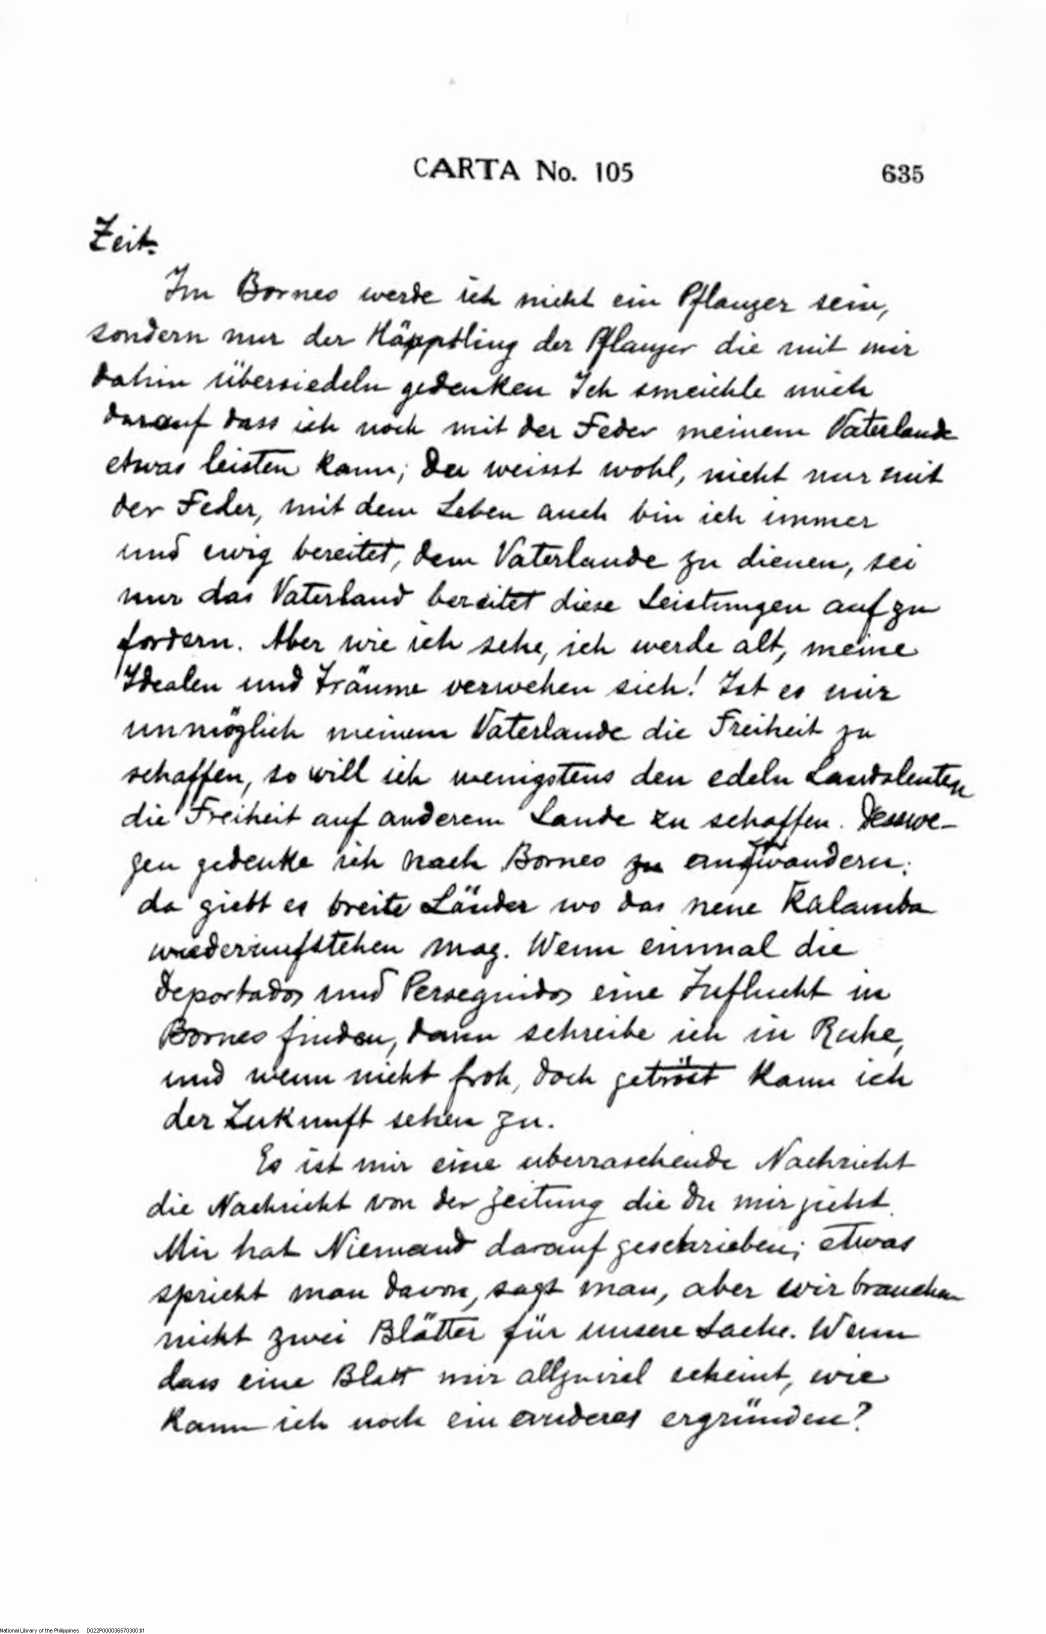 CARTA No. 105 635
Zeit.
Im Borneo werde ich nicht ein Pflanzer sein,
sondern nur der Häpptling der Pflanzer die mit mir
dahin übersiedeln gedenken Ich smeichle mich
darauf dass ich noch mit der Feder meinem Vaterlande
etwas leisten kann; Du weisst wohl, nicht nur mit
der Feder, mit dem Leben auch bin ich immer
und ewig bereitet, dem Vaterlande zu dienen, sei
nur das Vaterland bereitet diese Leistungen auf zu
fordern. Aber wie ich sehe, ich werde alt, meine
Idealen und Träume verwehen sich! Ist es mir
unmöglich meinem Vaterlande die Freiheit zu
schaffen, so will ich wenigstens den edeln Landsleuten
die Freiheit auf anderem Lande zu schaffen. Desswe-
gen gedenke ich nach Borneo zu wandern:
da giebt es breite Länder wo das neue Kalamba
wiederaufstehen mag. Wenn einmal die
Deportados und Perseguidos eine Zuflucht in
Borneo finden, dann schreibe ich in Ruhe,
und wenn nicht froh, doch getröst kann ich
der Zukunft sehen zu.
Es ist mir eine uberraschende Nachricht
die Nachricht von der Zeitung die Du mir giebst.
Mir hat Niemand darauf geschrieben; etwas
spricht man davon, sagt man, aber wir brauchen
nicht zwei Blätter für unsere Sache. Wenn
das eine Blatt mir allzuviel scheint, wie
kann ich noch ein anderes ergründen?
National Library of the Philippines